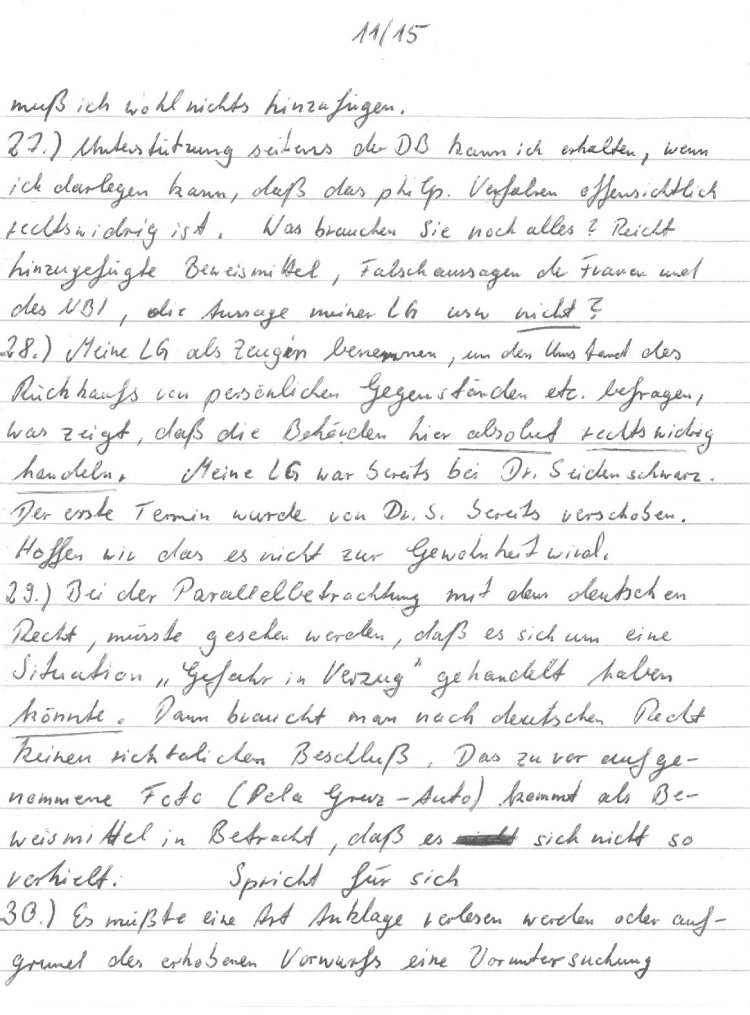 11/15
muß ich wohl nichts hinzufügen.
27.) Unterstützung seitens der DB kann ich erhalten, wenn
ich darlegen kann, daß das philp. Verfahren offensichtlich
rechtswidrig ist. Was brauchen Sie noch alles? Reicht
hinzugefügte Beweismittel, Falschaussagen der Frauen und
des NBI, die Aussage meiner LG usw nicht?
28.) Meine LG als Zeugin benennen, um den Umstand des
Rückkaufs von persönlichen Gegenständen etc. befragen,
was zeigt, daß die Behörden hier absolut rechtswidrig
handeln. Meine LG war bereits bei Dr. Seidenschwarz.
Der erste Termin wurde von Dr. S. bereits verschoben.
Hoffen wir das es nicht zur Gewohnheit wird.
29.) Bei der Parallelbetrachtung mit dem deutschen
Recht, müsste gesehen werden, daß es sich um eine
Situation „Gefahr in Verzug" gehandelt haben
könnte. Dann braucht man nach deutschen Recht
keinen richterlichen Beschluß. Das zuvor aufge-
nommene Foto (Pela Gruz-Auto) kommt als Be-
weismittel in Betracht, daß es sich nicht so
verhielt. Spricht für sich
30.) Es müßte eine Art Anklage verlesen werden oder auf-
grund des erhobenen Vorwurfs eine Voruntersuchung